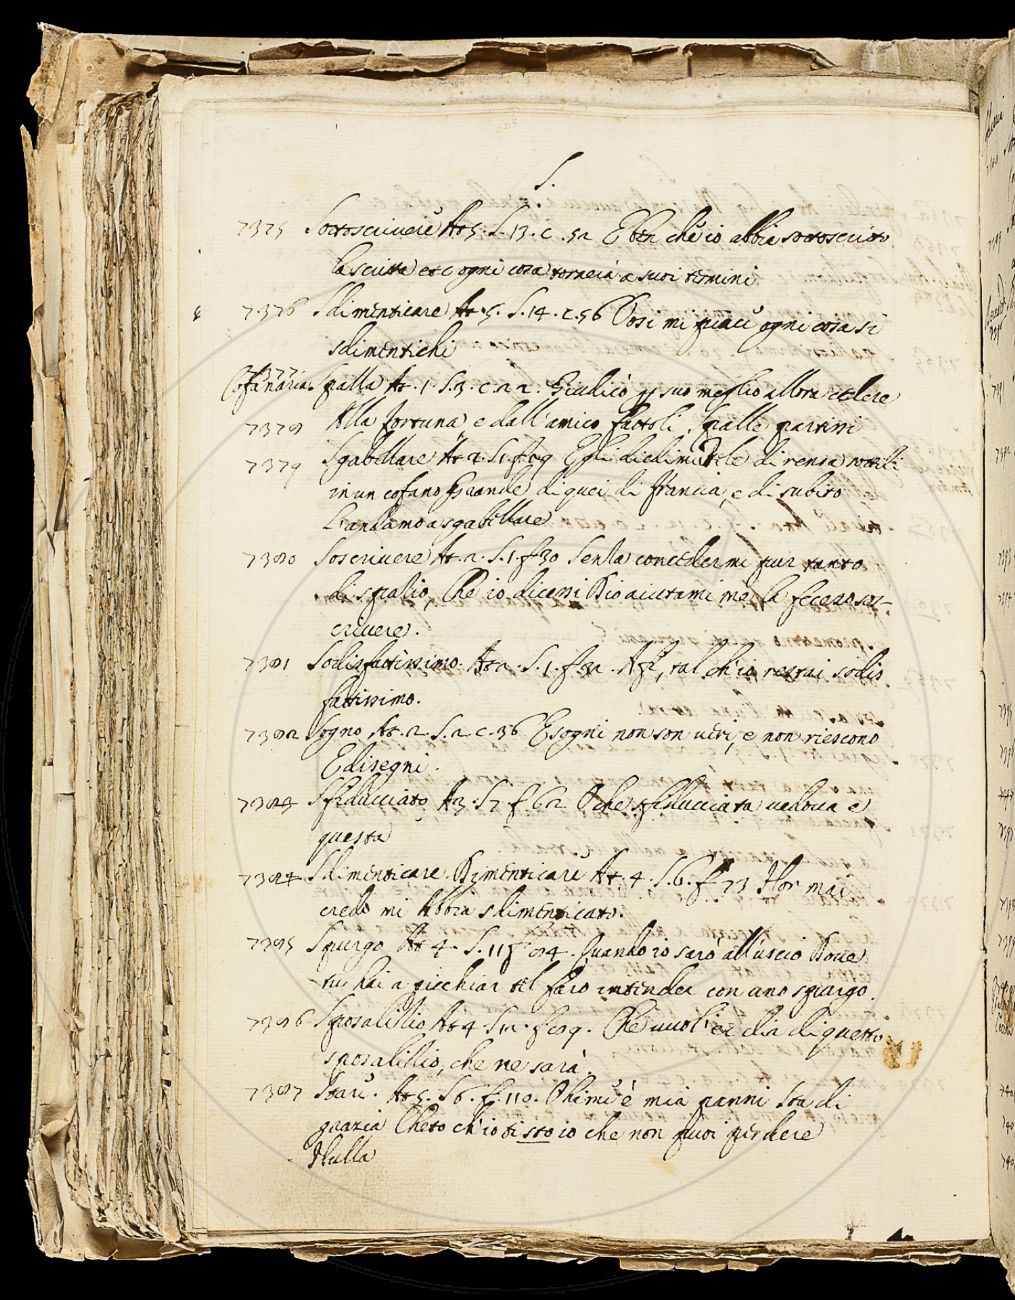 S.
7375 Sottoscrivere At 5. S. 13. c. 52 E ben che io abbia sottoscritto
la scritta etc ogni cosa tornerà a suoi termini
7376 Sdimenticare At. 5. S. 14. c. 56 Così mi piace ogni cosa si
sdimentichi
7377
Spalla At. 1. S. 3. c. 22. Giudicò p suo meglio allora cedere
7378 Alla fortuna e dall'amico spalle partirsi
7379 Sgabellare At 2. S. 1. f. 29 Egli diedi di rensa
in un cofano grande di quei di Francia, e di subito
L'andamo a sgabellare
7380 Soscrivere At. 2. S. 1. f. 30 Senza concedermi pur tanto
di spatio, Che io dicessi Dio aiutami me la fecero sos-
crivere.
7381 Sodisfattissimo. At 2. S. 1. f. 32. tal ch'io restai sodis
fattissimo.
7382 Sogno At. 2. S. 2. c. 36 E sogni non son veri, e non riescono
E disegni.
Sfiducciato At 3. S. 7. f. 62 O che sfiducciata vedova è
questa
7384 Sdimenticare. Dimenticare At. 4. S. 6. f. 73 Hor mai
credo mi abbia sdimenticato.
7385 Spurgo At 4. S. 11 f. 84. Quando io sarò all'uscio Dove
tu hai a picchiar tel farò intender con uno spurgo.
7386 Sposalitio At 4. S. 12. f. 89. Che vuol di questo
sposalitio, che ne sarà.
7387 Stare. At 5. S. 6. f. 110. Ohimè è mia panni sta di
gratia Cheto ch'io ti sto io che non puoi perdere
Nulla